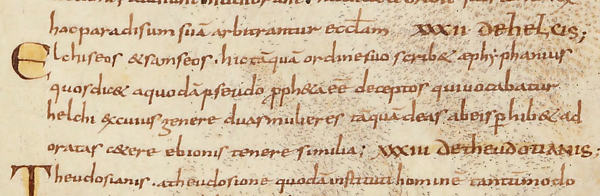 hac paradisum suā arbitrantur eccłam XXXII DE helcis;
Elchiseos & sāmseos . hic tāquā ordine suo scrib& æphyphanius
quos dic& a quodā pseudo pph&a eē deceptos qui vocabatur
helchi & cuius genere duas mulieres tāquā deas ab eis phib& ad
oratas c&ere ebionis tenere similia; XXXIII DE theudotianis;
Theudosianis . a theudosione quodā instituti homine tantumodo